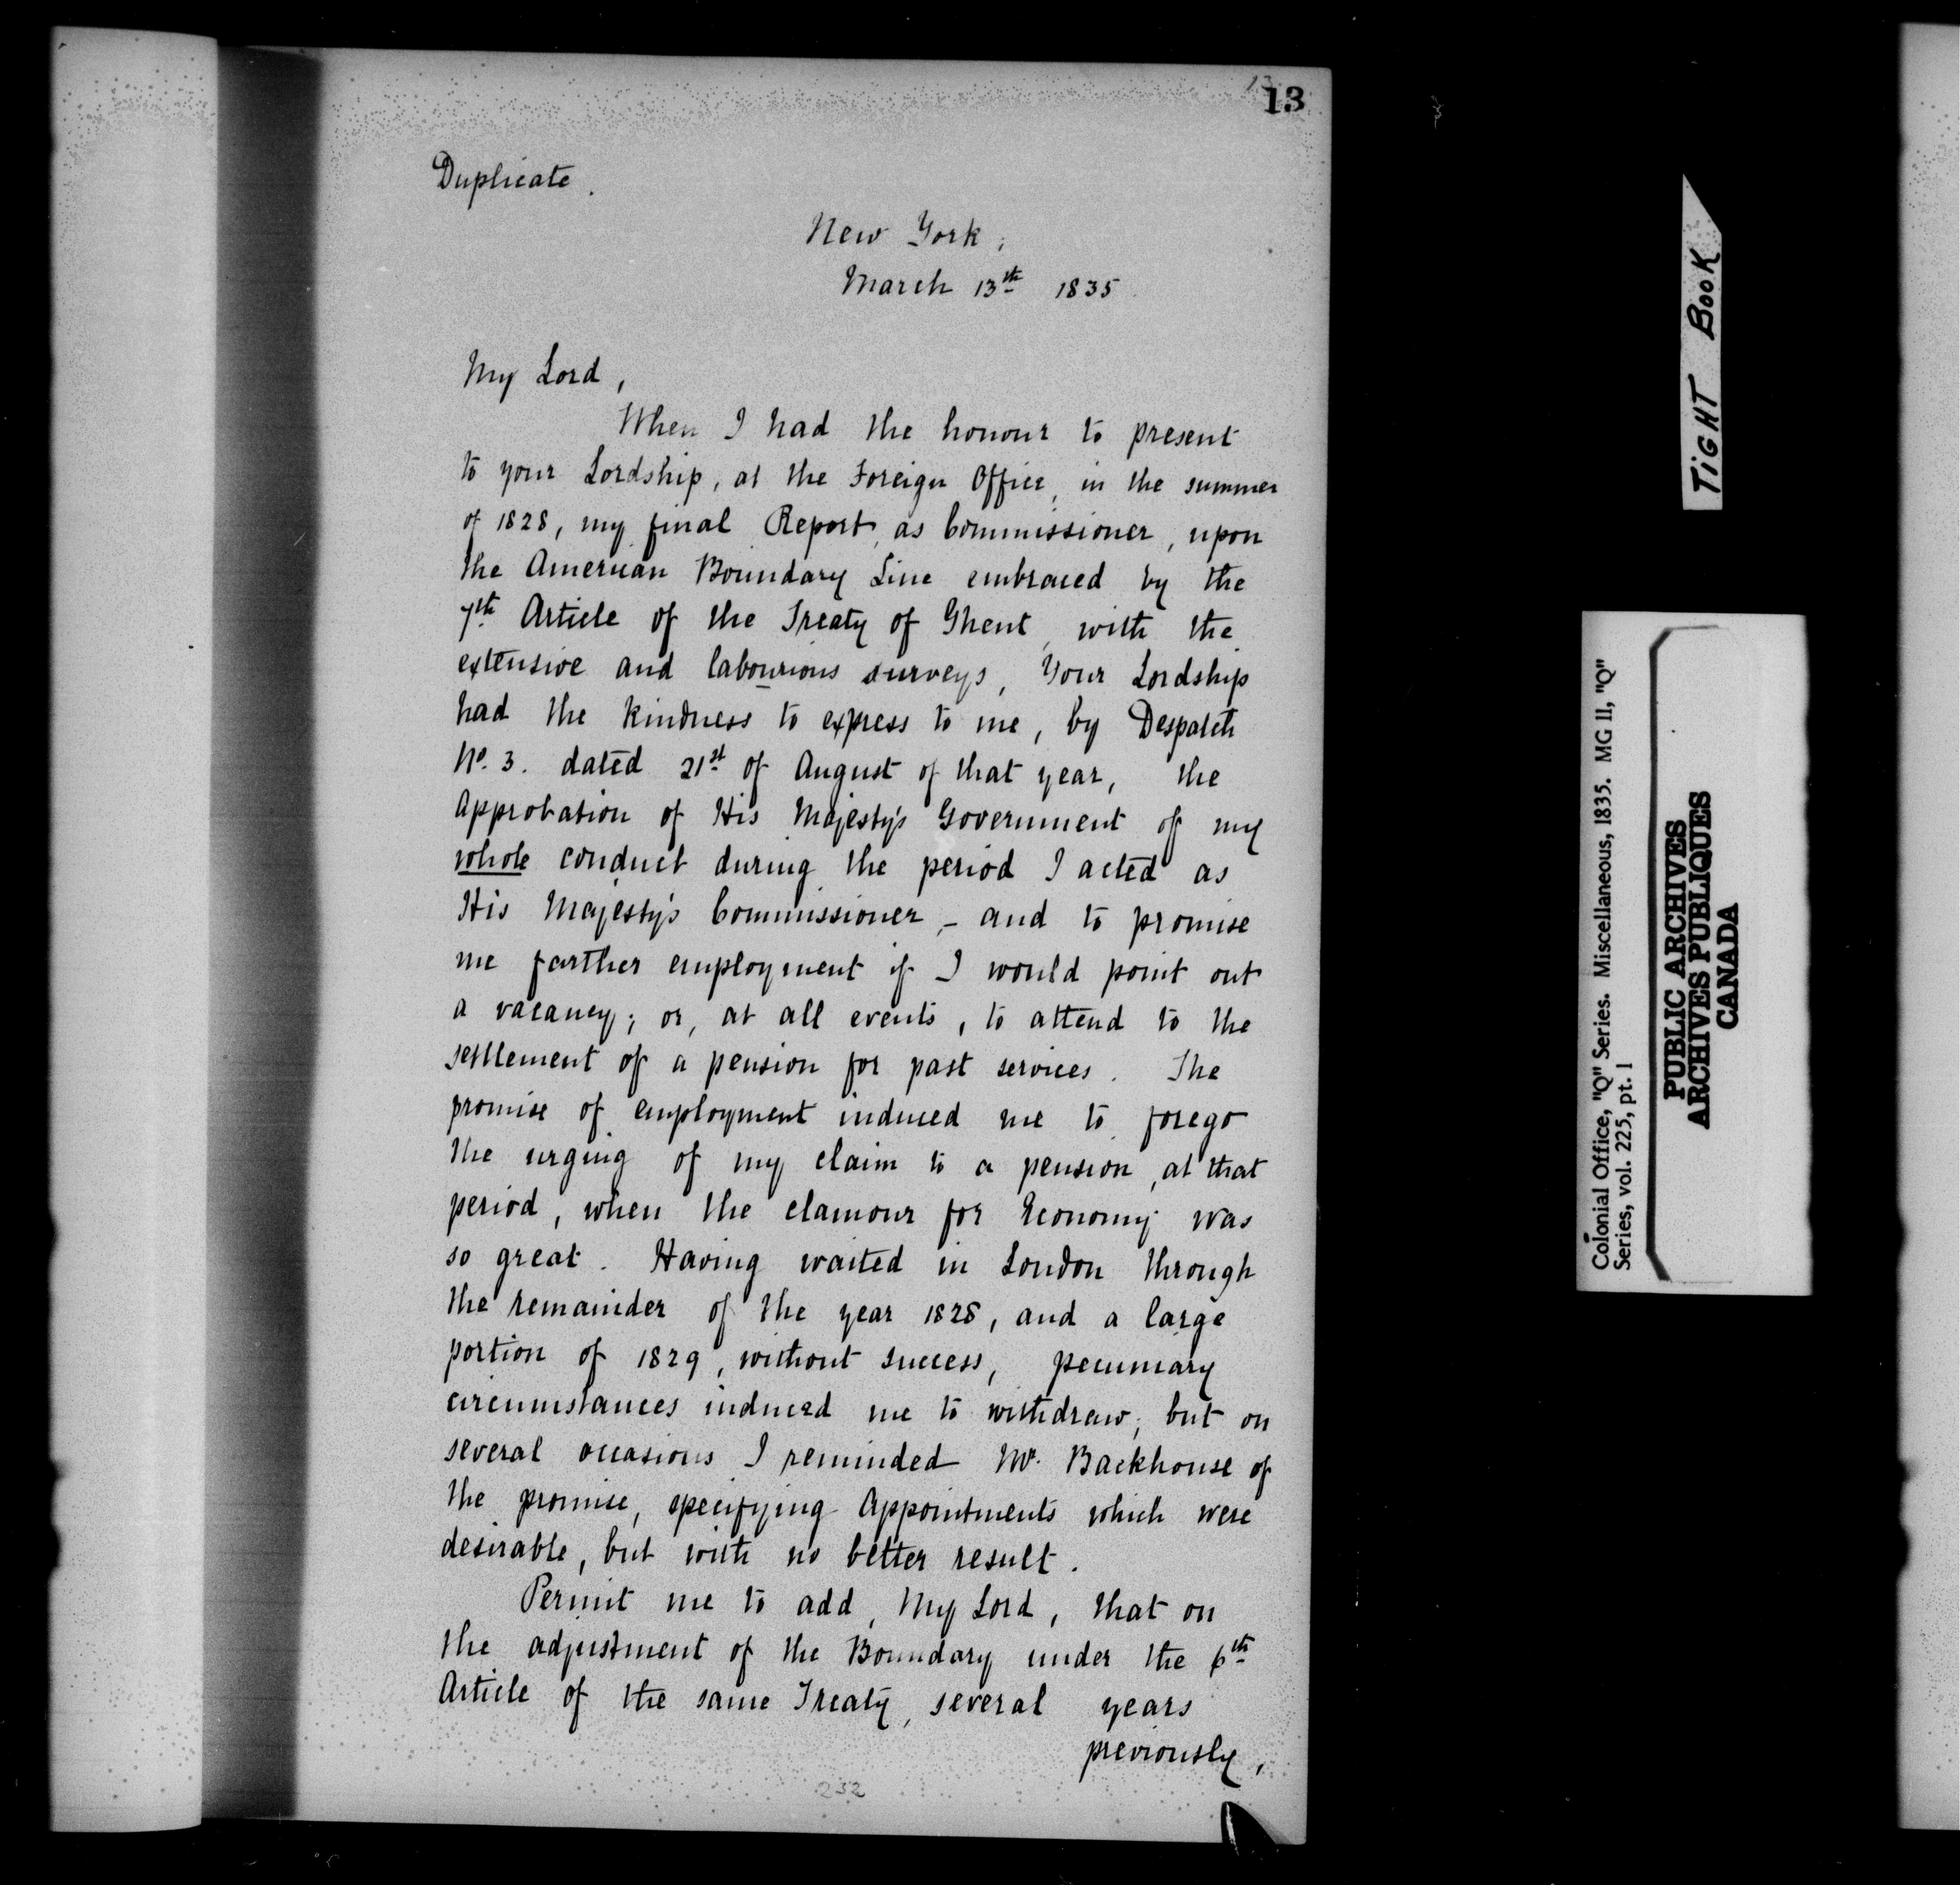 13
13
Duplicate.
New York,
March 13th 1835
My Lord,
When I had the honour to present
to your Lordship, at the Foreign Office, in the summer
of 1828, my final Report, as Commissioner, upon
the American Boundary Line embraced by the
7th Article of the Treaty of Ghent, with the
extensive and labourious surveys, Your Lordship
had the kindness to express to me, by Despatch
No. 3. dated 21st of August of that year, the
approbation of His Majesty's Government of my
whole conduct during the period I acted as
His Majesty's Commissioner, - and to promise
me farther employment if I would point out
a vacancy; or, at all events, to attend to the
settlement of a pension for past services. The
promise of employment induced me to forego
the urging of my claim to a pension, at that
period, when the clamour for Economy was
so great. Having waited in London through
the remainder of the year 1828, and a large
portion of 1829, without success, pecuniary
circumstances induced me to withdraw; but on
several occasions I reminded Mr. Backhouse of
the promise, specifying Appointments which were
desirable, but with no better result.
Permit me to add, My Lord, that on
the adjustment of the Boundary under the 6th
Article of the same Treaty, several years
previously,
232
TIGHT BOOK
Colonial Office, "Q" Series. Miscellaneous, 1835. MG II, "Q"
Series, vol. 225, pt. 1
PUBLIC ARCHIVES
ARCHIVES PUBLIQUES
CANADA